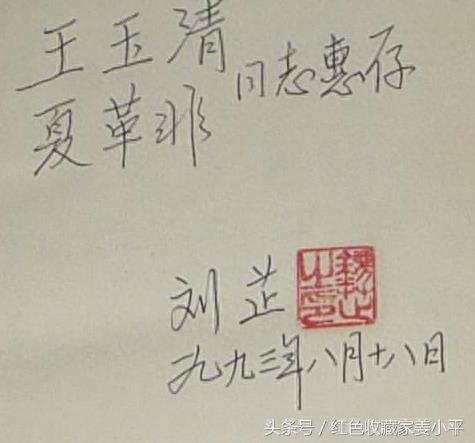 王玉清
夏革非 同志惠存
刘芷
一九九三年八月十八日
头条号/红色收藏家姜小平